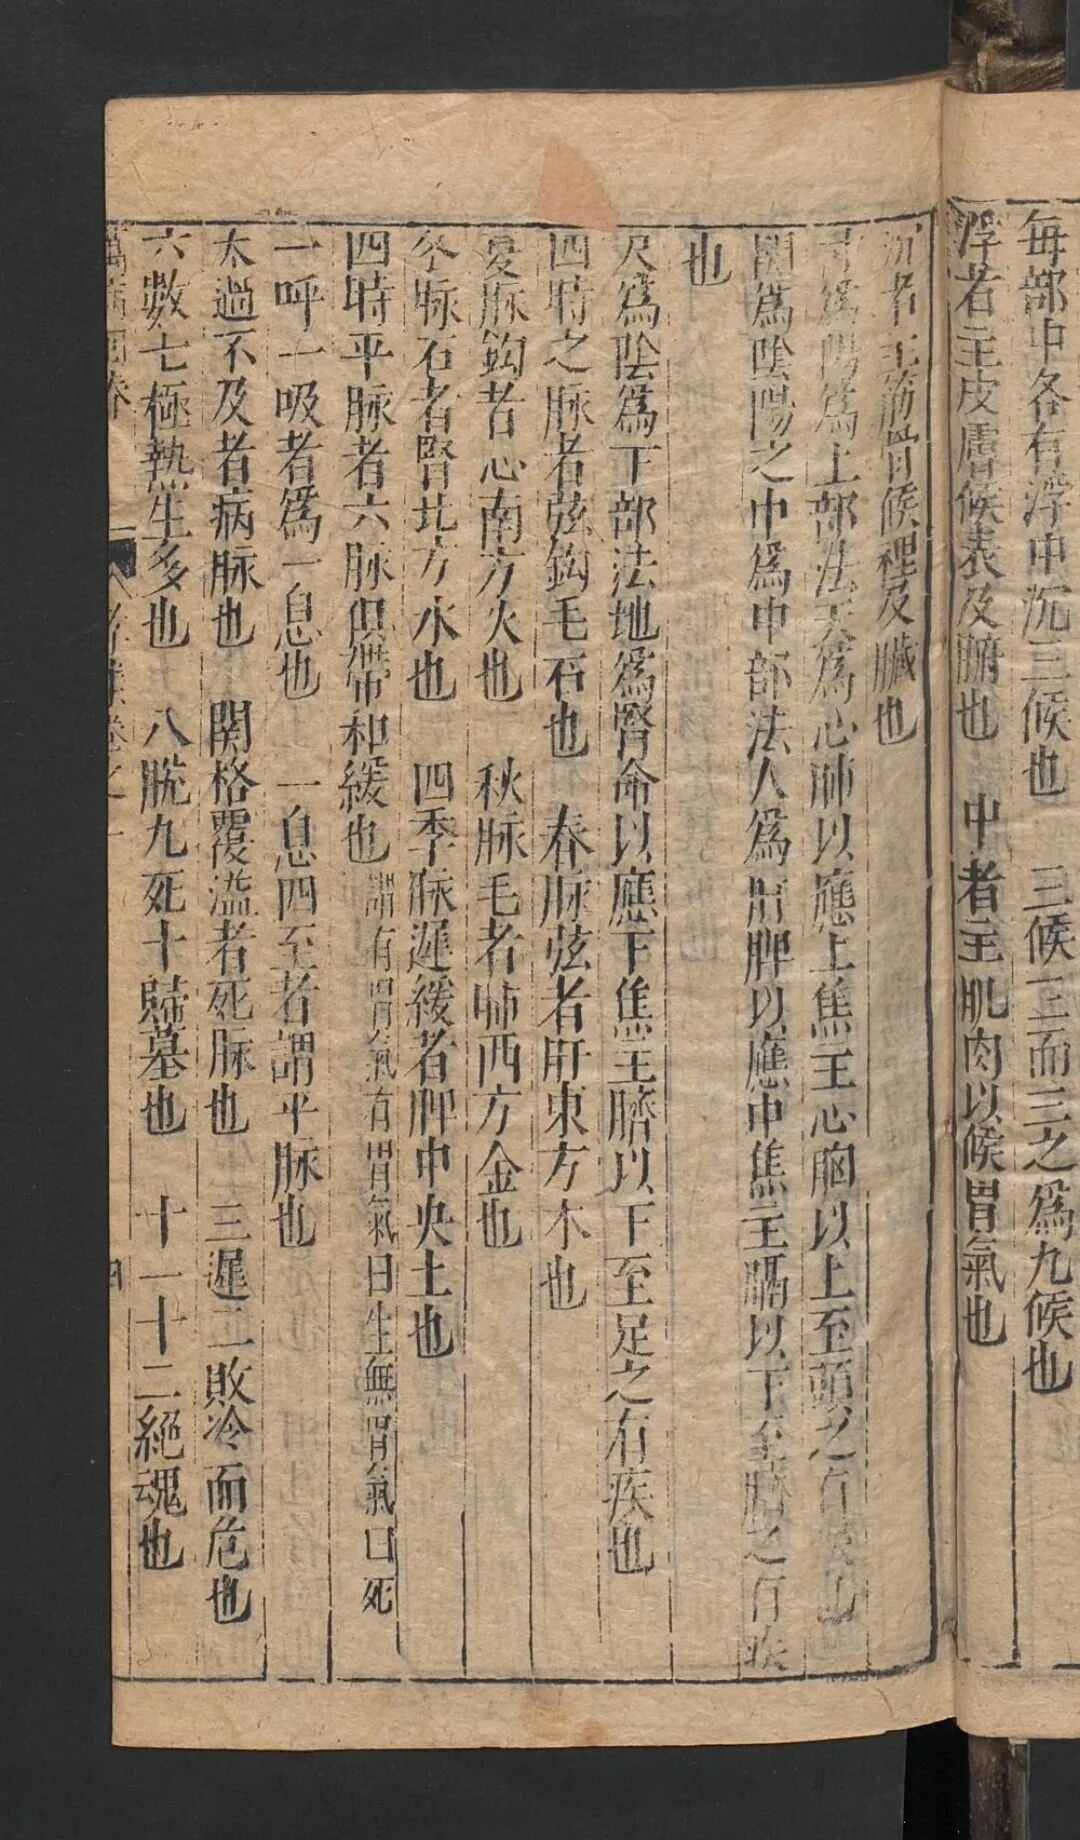 每部中各有浮中沉三候也　三候三而三之爲九候也
浮者主皮膚候表及腑也　中者主肌肉以候胃氣也
沉者主筋骨候裡及臟也
寸爲陽爲上部法天爲心肺以應上焦主心胸以上至頭之有疾也
関爲陰陽之中爲中部法人爲肝脾以應中焦主膈以下至臍之有疾
也
尺爲陰爲下部法地爲腎命以應下焦主臍以下至足之有疾也
四時之脉者弦鈎毛石也　春脉弦者肝東方木也
夏脉鈎者心南方火也　秋脉毛者肺西方金也
冬脉石者腎北方水也　四季脉遲緩者脾中央土也
四時平脉者六脉俱帶和緩也　謂有胃氣有胃氣曰生無胃氣曰死
一呼一吸者爲一息也　一息四至者謂平脉也
太過不及者病脉也　関格覆溢者死脉也　三遲二敗冷而危也
六數七極熱生多也　八脫九死十歸墓也　十一十二絕魂也
萬病回春　卷之一　四